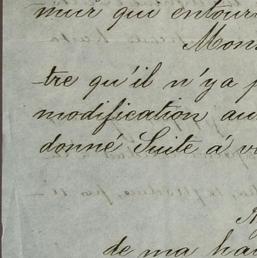 mur qui entour
Mons
tre qu'il n'y a p
modification au
donné Suite à v
de ma hau